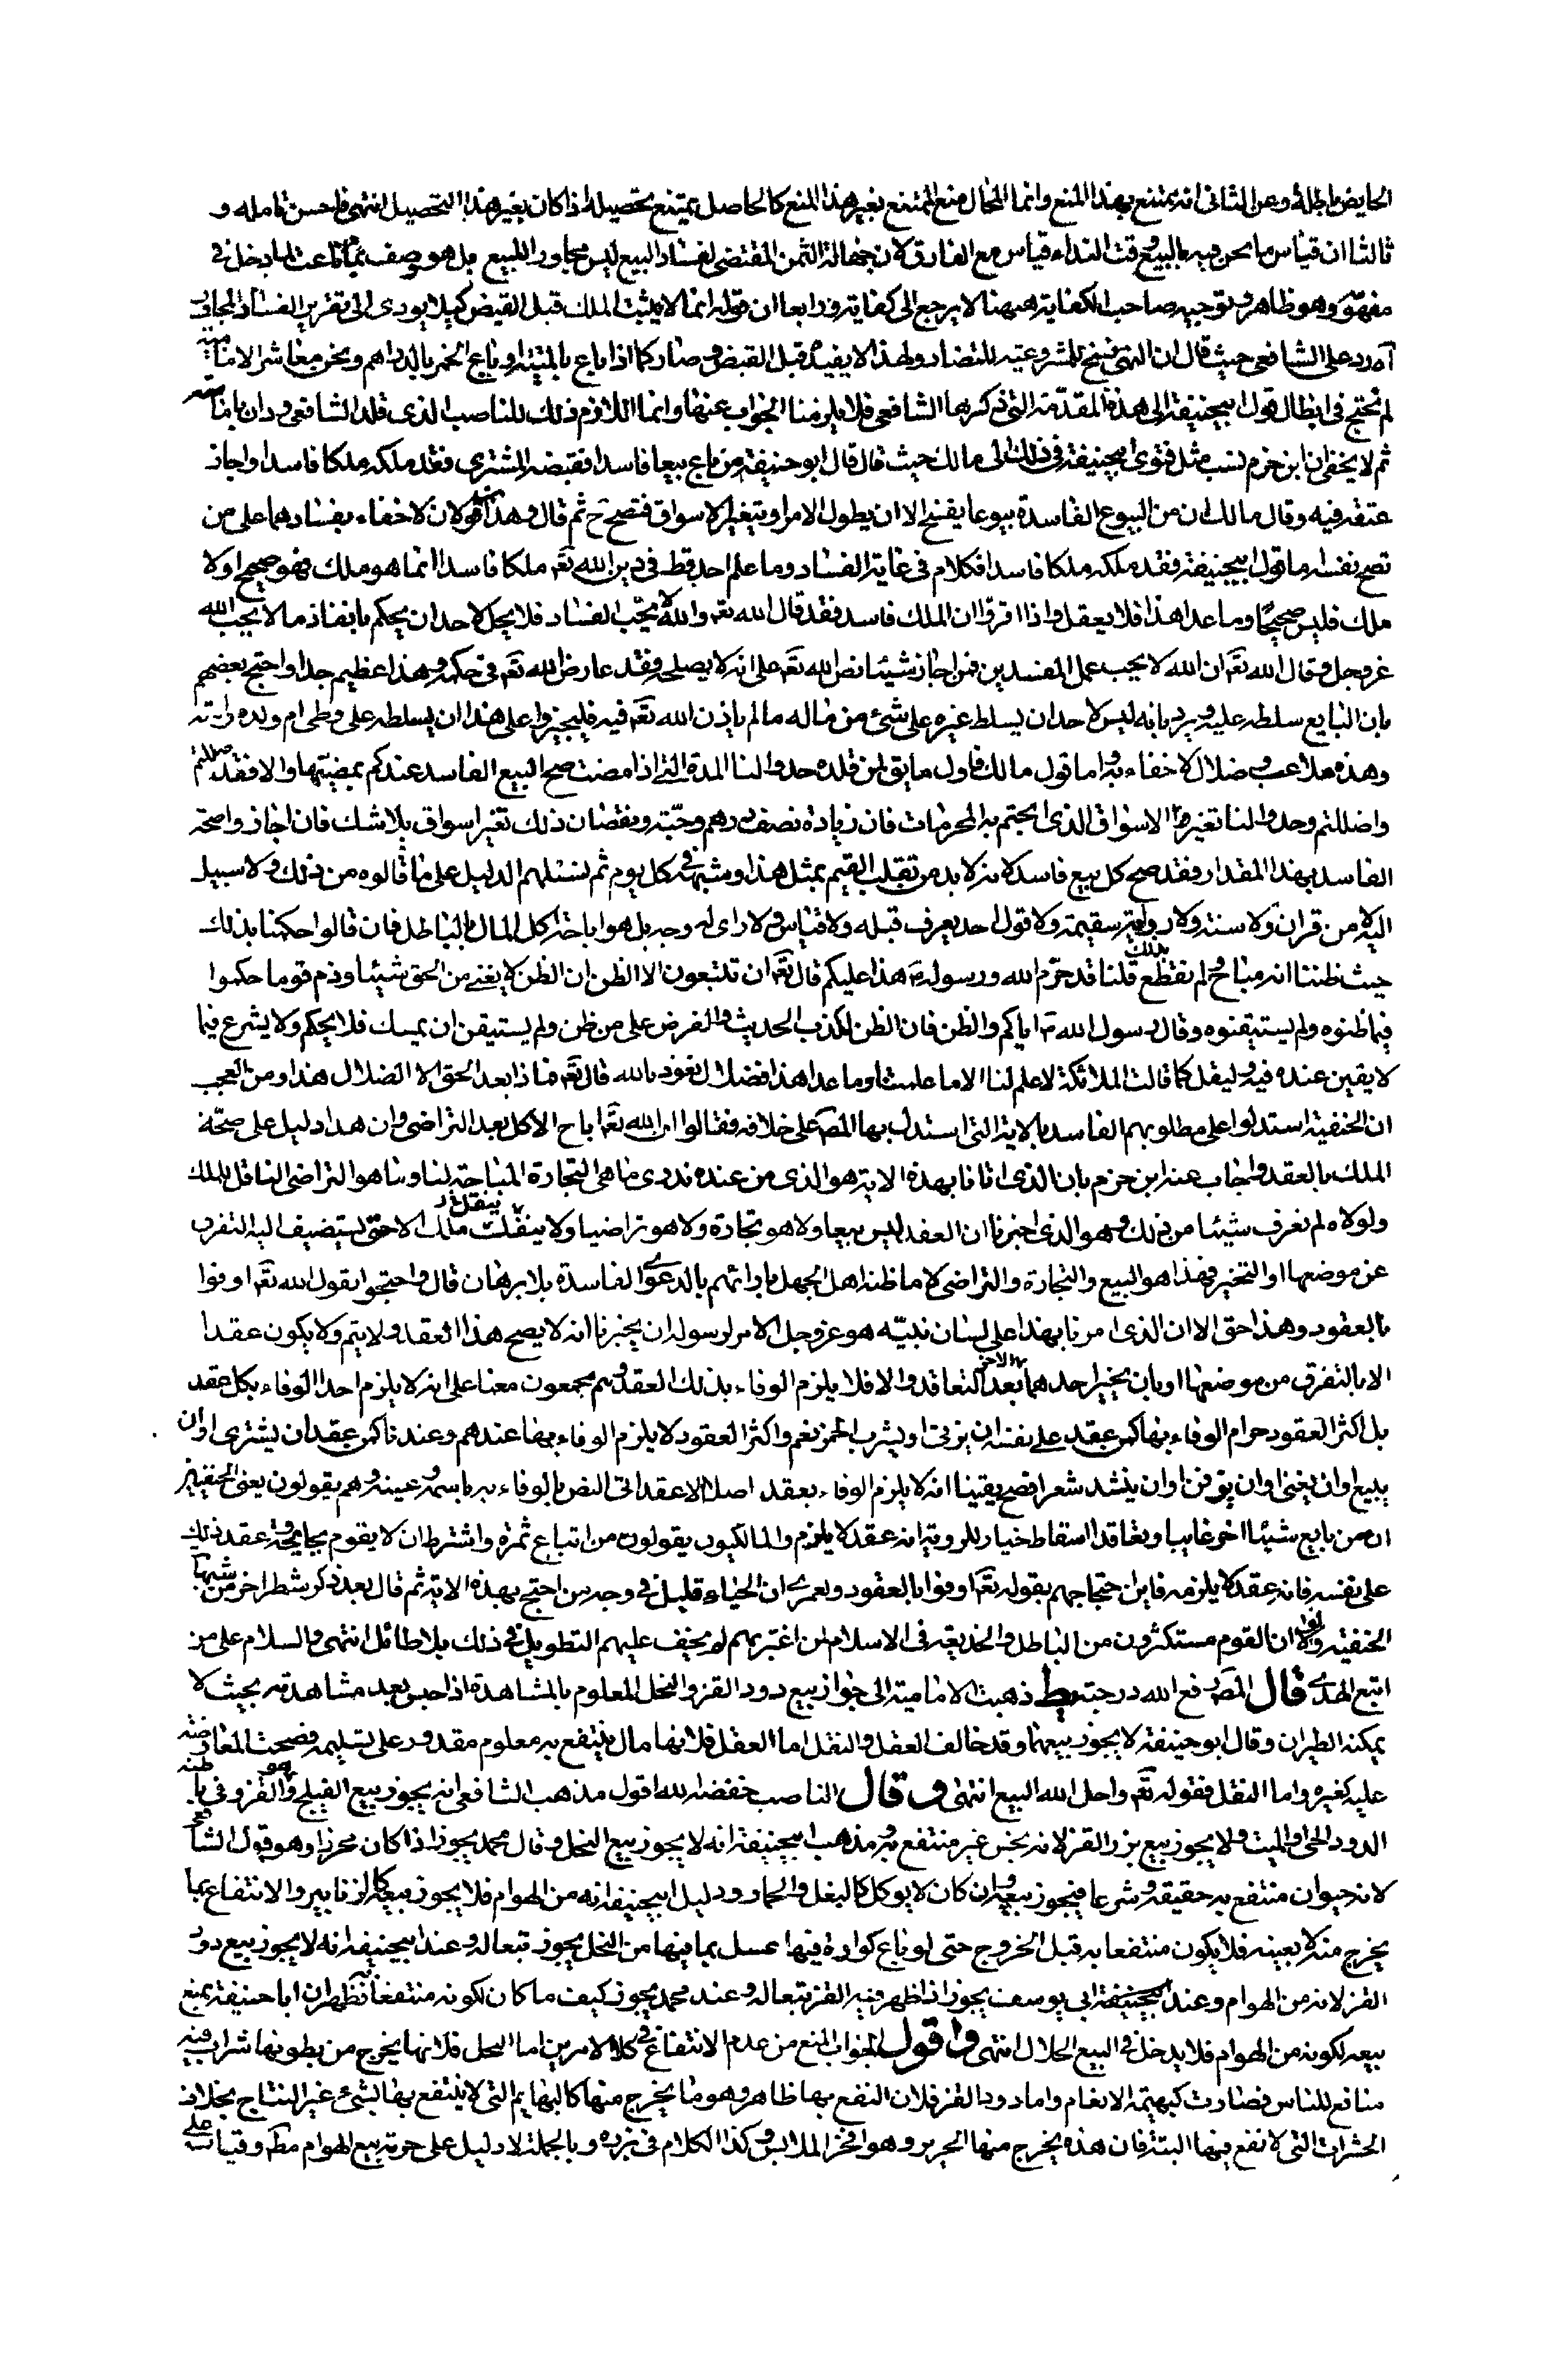 الحايض باطلة وعن الثانى انه يمتنع بهذا المنع وانما المحال منع الممتنع بغير هذا المنع كالحاصل يمتنع تحصيله اذا كان بغير هذا التحصيل انتهى فاحسن تامله و
ثالثا ان قياس ما نحن فيه بالبيع وقت النداء قياس مع الفارق لان جهالة الثمن المقتضى لفساد البيع ليس مجاورا للبيع بل هو وصف
وهو ظاهر فتوجيه صاحب الكفاية ههنا لا يرجع الى كفاية ورابعا ان قوله انما لا يثبت الملك قبل القبض كيلا يودى الى تقرير الفساد المجاور
آه رد على الشافعى حيث قال ان النهى نسخ للمشروعية للتضاد ولهذا لا يفيده قبل القبض وصار كما اذا باع بالميتة او باع الخمر بالدراهم ونحن معاشر الامامية
لم نحتج فى ابطال قول ابيحنيفة الى هذه المقدمة التى ذكرها الشافعى فلا يلزمنا الجواب عنها وانما اللازم ذلك للناصب الذى قلد الشافعى ودان بامامته
ثم لا يخفى ان ابن حزم نسب مثل فتوى ابيحنيفة فى ذلك الى مالك حيث قال قال ابو حنيفة من باع بيعا فاسدا فقبضه المشترى فقد ملكه ملكا فاسدا واجاز
عتقه فيه وقال مالك ان من البيوع الفاسدة بيوعا يفسخ الا ان يطول الامر او يتغير الاسواق فتصح ح ثم قال وهذان قولان لا خفاء بفسادهما على من
نصح نفسه اما قول ابيحنيفة فقد ملكه ملكا فاسدا فكلام فى غاية الفساد وما علم احد قط فى دين الله تعم ملكا فاسدا انما هو ملك فهو صحيح او لا
ملك فليس صحيحا وما عدا هذا فلا يعقل واذا اقروا ان الملك فاسد فقد قال الله تعم والله لا يحب الفساد فلا يحل لاحد ان يحكم بانفاذ ما لا يحب الله
عز وجل وقال الله تعم ان الله لا يحب عمل المفسدين فمن اجاز شيئا نص الله تعم على انه لا يصلحه فقد عارض الله تعم فى حكمه وهذا عظيم جدا واحتج بعضهم
بان البايع سلطه عليه ويرد بانه ليس لاحد ان يسلط غيره على شئ من ماله ما لم ياذن الله تعم فيه فليجيزوا على هذا ان يسلطه على وطى ام ولده وامته
وهذه ملاعب وضلال لا خفاء به واما قول مالك فاول ما يق لمن قلده حدوا لنا المدة التى اذا مضت صح البيع الفاسد عندكم بمضيتها والا فقد ضللتم
واضللتم وحدوا لنا تغير الاسواق الذى ابحتم به المحرمات فان زيادة نصف درهم وحبة ونقصان ذلك تغير اسواق بلا شك فان اجازوا صحة
الفاسد بهذا المقدار فقد صح كل بيع فاسد لانه لا بد من تقلب القيم بمثل هذا وشبهه فى كل يوم ثم نسئلهم الدليل على ما قالوه من ذلك ولا سبيل
اليه لا من قران ولا سنة ولا رواية سقيمة ولا قول احد يعرف قبله ولا قياس ولا راى له وجه بل هو اباحة اكل المال بالباطل فان قالوا حكمنا بذلك
حيث ظننا انه مباح لم نقطع بذلك قلنا قد حرم الله ورسوله ص هذا عليكم قال تعم ان تتبعون الا الظن ان الظن لا يغنى من الحق شيئا وذم قوما حكموا
فيما ظنوه ولم يستيقنوه وقال رسول الله ص اياكم والظن فان الظن اكذب الحديث والفرض على من ظن ولم يستيقن ان يمسك فلا يحكم ولا يشرع فيما
لا يقين عنده فيه وليقل كما قالت الملائكة لا علم لنا الا ما علمتنا وما عدا هذا فضلال نعوذ بالله قال تعم فماذا بعد الحق الا الضلال هذا ومن العجب
ان الحنفية استدلوا على مطلوبهم الفاسد بالاية التى استدل بها المص على خلافه فقالوا ان الله تعم اباح الاكل بعد التراضى وان هذا دليل على صحة
الملك بالعقد واجاب عنه ابن حزم بان الذى اتانا بهذه الاية هو الذى من عنده ندرى ما هى التجارة المباحة لنا وما هو التراضى الناقل للملك
ولولاه لم نعرف شيئا من ذلك وهو الذى اخبرنا ان العقد ليس بيعا ولا هو تجارة ولا هو تراضيا ولا ينقل ملك الا حتى يستضيف اليه التفرق
عن موضعها او التخيير فهذا هو البيع والتجارة والتراضى لا ما ظنه اهل الجهل بارائهم بالدعوى الفاسدة بلا برهان قال واحتجوا بقول الله تعم اوفوا
بالعقود وهذا حق الا ان الذى امرنا بهذا على لسان نبيه هو عز وجل الامر لرسوله ان يخبرنا انه لا يصح هذا العقد ولا يتم ولا يكون عقدا
الا بالتفرق من موضعها او بان يخير احدهما الاخر بعد التعاقد والا فلا يلزم الوفاء بذلك العقد وهم مجمعون معنا على انه لا يلزم احدا الوفاء بكل عقد
بل اكثر العقود حرام الوفاء بها كمن عقد على نفسه ان يزنى او يشرب الخمر نعم واكثر العقود لا يلزم الوفاء بها عندهم وعندنا كمن عقد ان يشترى او ان
يبيع او ان يغنى او ان يزفن او ان ينشد شعرا فصح يقينا انه لا يلزم الوفاء بعقد اصلا الا عقدا اتى النص بالوفاء به باسمه وعينه وهم يقولون يعنى الحنفية
ان من بايع شيئا اخر غايبا وتعاقدا اسقاط خيار الروية انه عقد لا يلزم والمالكيون يقولون من ابتاع ثمرة واشترط ان لا يقوم بجايحة وعقد ذلك
على نفسه فانه عقد لا يلزمه فاين احتجاجهم بقوله تعم اوفوا بالعقود ولعمرى ان الحياء قليل فى وجه من احتج بهذه الاية ثم قال بعد ذكر شطر اخر من شبه
الحنفية ولولا ان القوم مستكثرون من الباطل والخديعة فى الاسلام لمن اغتر بهم لم يخف عليهم التطويل فى ذلك بلا طائل انتهى والسلام على من
اتبع الهدى قال المص رفع الله درجته يط ذهبت الامامية الى جواز بيع دود القز والنحل المعلوم بالمشاهدة اذا حبس بعد مشاهدته بحيث لا
يمكنه الطيران وقال ابو حنيفة لا يجوز بيعهما وقد خالف العقل والنقل اما العقل فلانها مال ينتفع به معلوم مقدور على تسليمه فصحت المعاوضة
عليه كغيره واما النقل فقوله تعم واحل الله البيع انتهى وقال الناصب خفضه الله اقول مذهب الشافعى انه يجوز بيع الفيلج وهو القز وفى باطنه
الدود الحى والميت ولا يجوز بيع بزر القز لانه نجس غير منتفع به ومذهب ابيحنيفة انه لا يجوز بيع النحل وقال محمد يجوز اذا كان محرزا وهو قول الشافعى
لانه حيوان منتفع به حقيقة وشرعا فيجوز بيعه وان كان لا يوكل كالبغل والحمار ودليل ابيحنيفة انه من الهوام فلا يجوز بيعه كالزنابير والانتفاع بما
يخرج منه لا بعينه فلا يكون منتفعا به قبل الخروج حتى لو باع كوارة فيها عسل بما فيها من النحل يجوز تبعا له وعند ابيحنيفة انه لا يجوز بيع دود
القز لانه من الهوام وعند ابى يوسف يجوز اذا ظهر فيه القز تبعا له وعند محمد يجوز كيف ما كان لكونه منتفعا به فظهر ان ابا حنيفة يمنع
بيعه لكونه من الهوام فلا يدخل فى البيع الحلال انتهى واقول الجواب المنع من عدم الانتفاع فى كلا الامرين اما النحل فلانها يخرج من بطونها شراب فيه
منافع للناس فصارت كبهيمة الانعام واما دود القز فلان النفع بها ظاهر وهو ما يخرج منها كالبهايم التى لا ينتفع بها بشئ غير النتاج بخلاف
الحشرات التى لا نفع فيها البتة فان هذه يخرج منها الحرير وهو افخر الملابس وكذا الكلام فى بزره وبالجملة لا دليل على حرمة بيع الهوام مطم وقياسه على